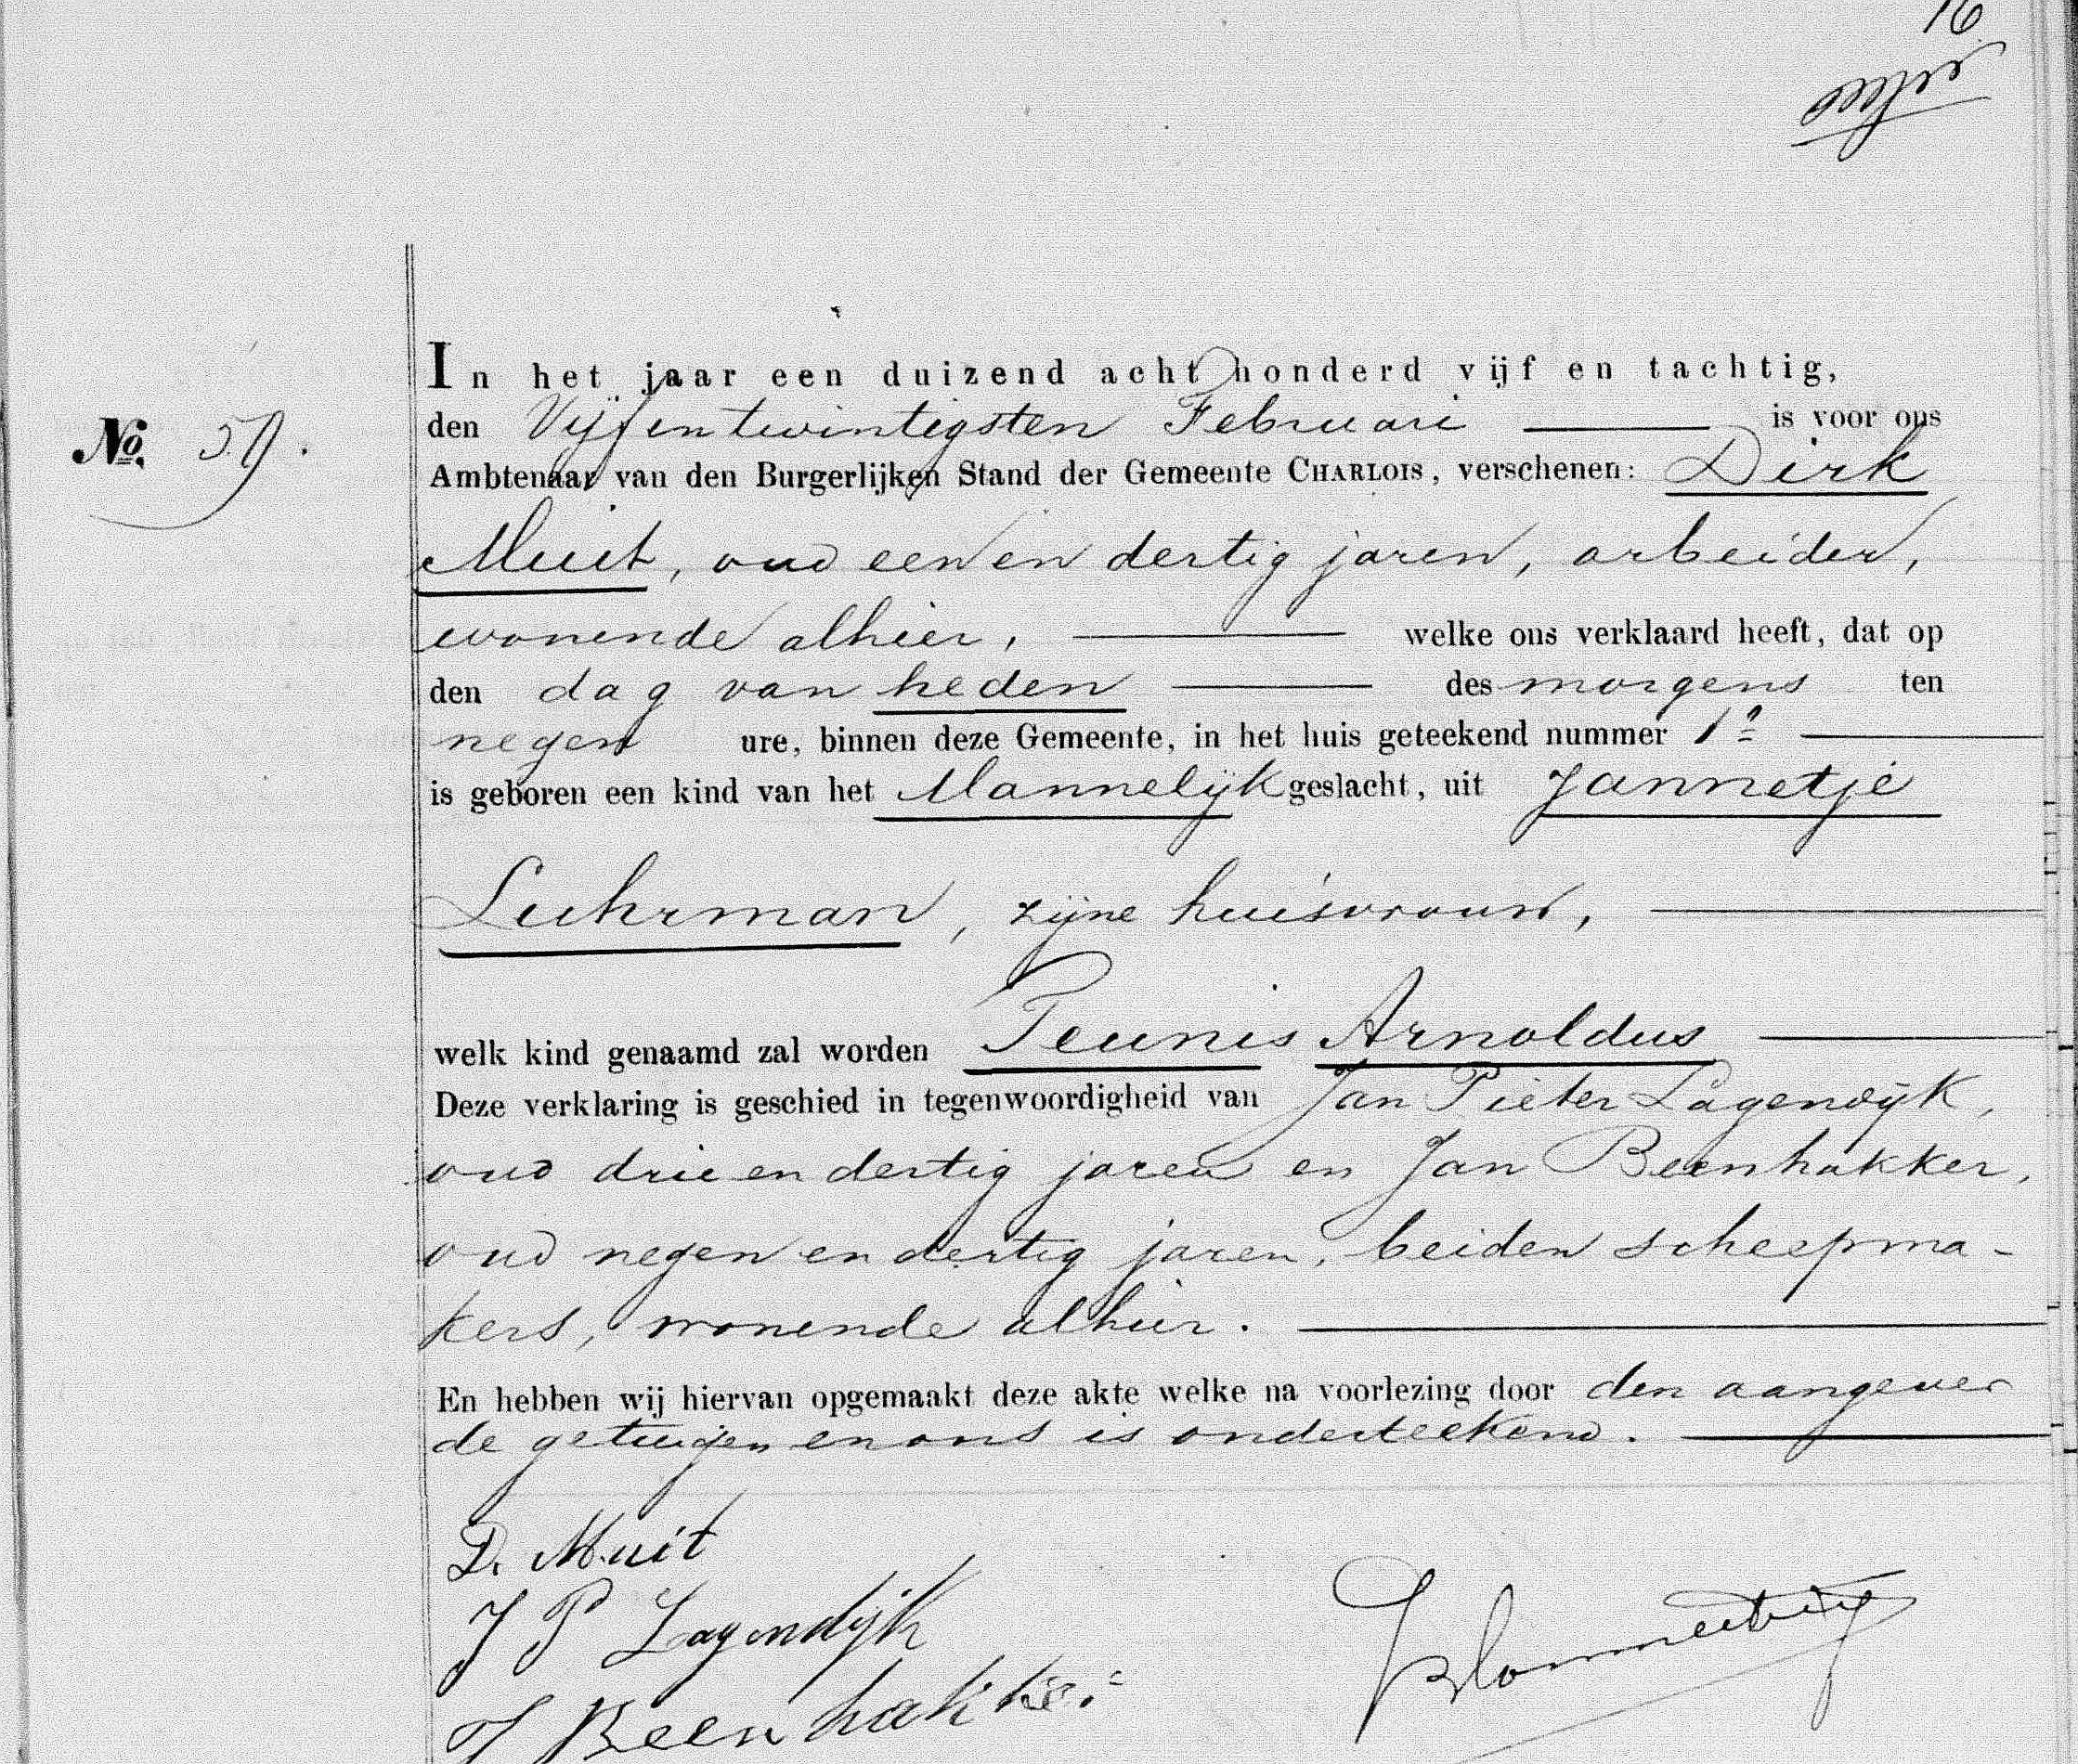 16
No. 59.
In het jaar een duizend acht honderd vijf en tachtig,
den Vijfentwintigsten Februari is voor ons
Ambtenaar van den Burgerlijken Stand der Gemeente CHARLOIS, verschenen: Dirk
Muit, oud een en dertig jaren, arbeider,
wonende alhier, welke ons verklaard heeft, dat op
den dag van heden des morgens ten
negen ure, binnen deze Gemeente, in het huis geteekend nummer
is geboren een kind van het Mannelijk geslacht, uit Jannetje
Luhrman, zijne huisvrouw,
welk kind genaamd zal worden Teunis Arnoldus
Deze verklaring is geschied in tegenwoordigheid van Jan Pieter Lagendijk,
oud drie en dertig jaren en Jan Beenhakker,
oud negen en dertig jaren, beiden scheepma-
kers, wonende alhier.
En hebben wij hiervan opgemaakt deze akte welke na voorlezing door den aangever
de getuigen en ons is onderteekend.
D. Muit
J P Lagendijk
J Beenhakker